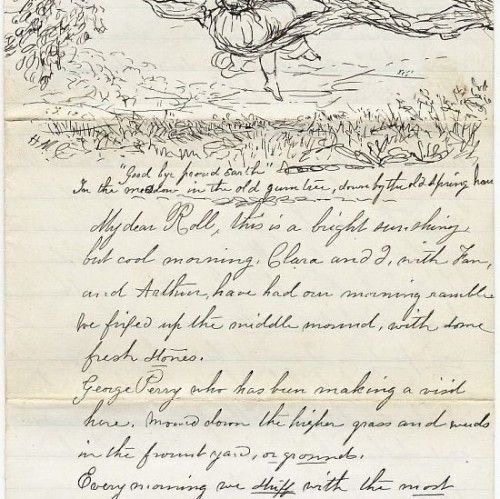 H.M.E.
"Good bye proud Earth"
In the meadow in the old gum tree, down by the old spring house
My dear Roll, this is a bright sunshing
but cool morning. Clara and I, with Fan,
and Arthur, have had our morning ramble
We fixed up the middle mound, with some
fresh stones.
George Perry who has been making a visit
here. Mowed down the higher grass and weeds
in the frount yard, or grounds.
Every morning we with the most